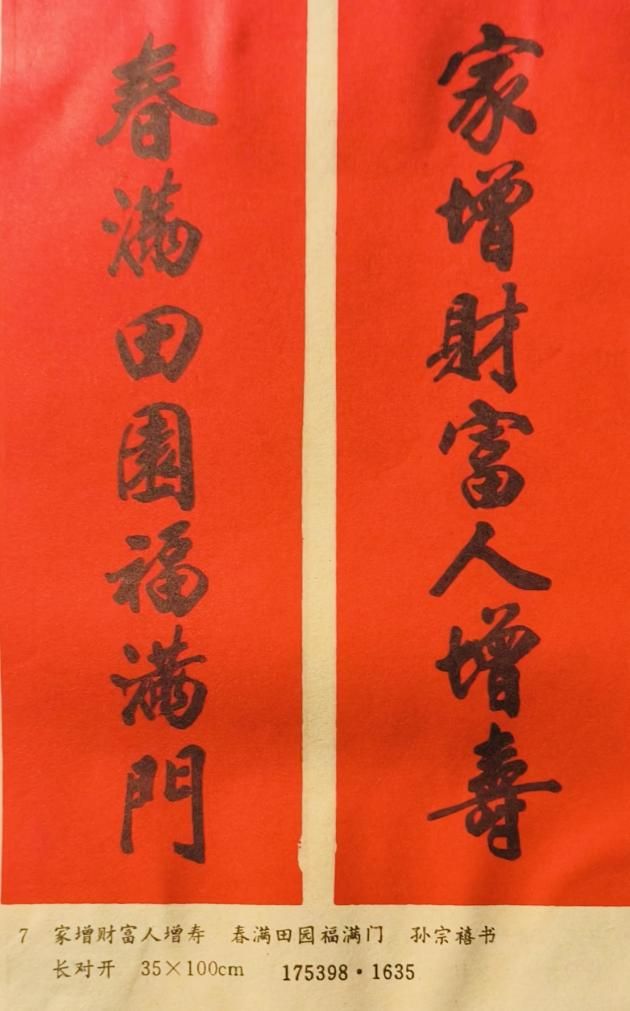 家增財富人增壽
春满田園福满門
7 家增财富人增寿 春满田园福满门 孙宗禧书
长对开 35×100cm 175398·1635